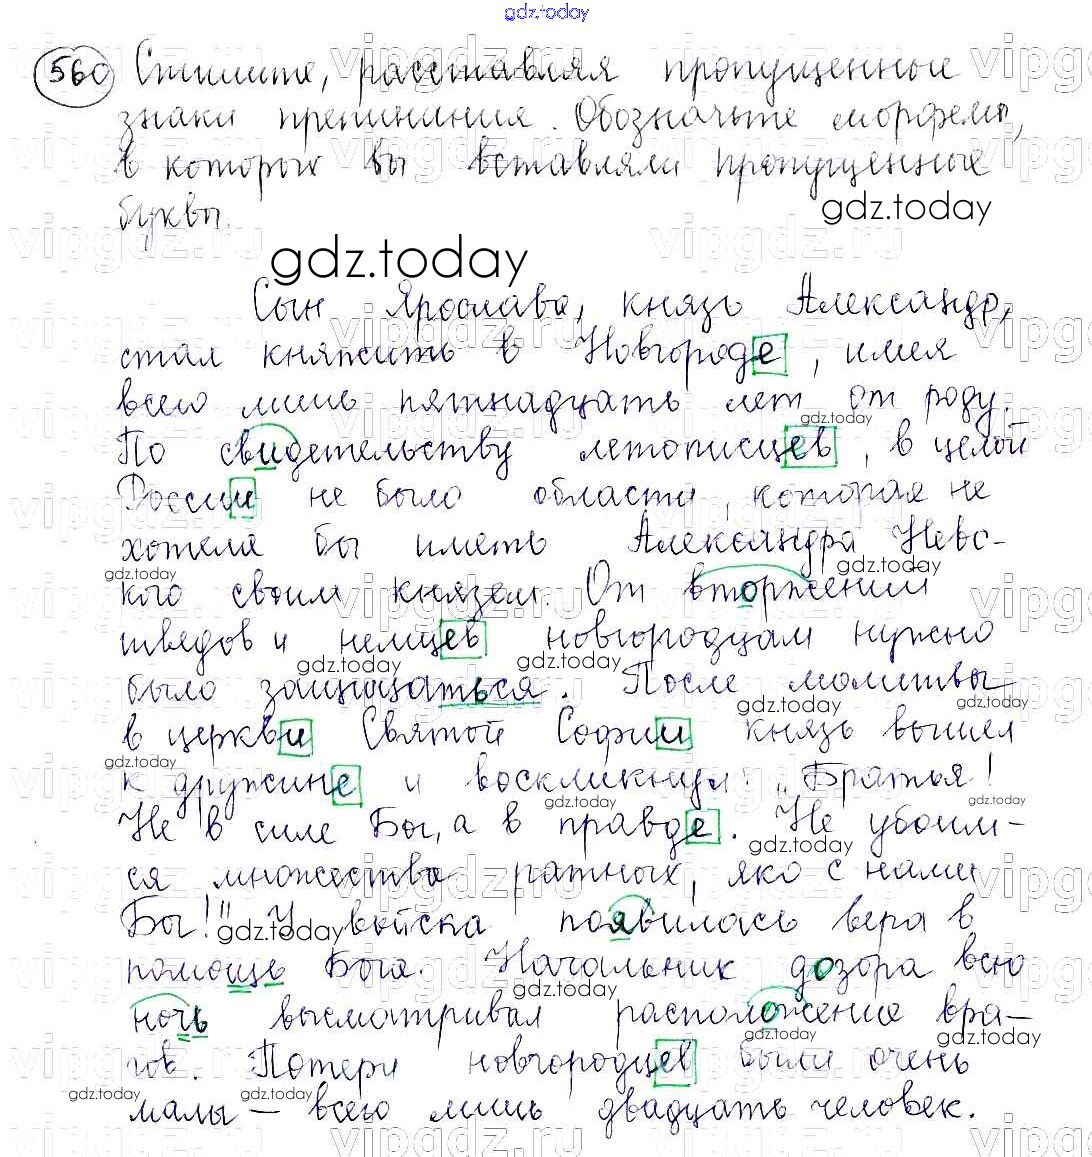 gdz.today
560 Спишите, расставляя пропущенные
знаки препинания. Обозначьте морфемы,
в которых вы вставляли пропущенные
буквы.
gdz.today
gdz.today
Сын Ярослава, князь Александр,
стал княжить в Новгороде, имея
всего лишь пятнадцать лет от роду.
gdz.today
По свидетельству летописцев, в целой
России не было области, которая не
хотела бы иметь Александра Невс-
gdz.today gdz.today
кого своим князем. От вторжений
шведов и немцев новгородцам нужно
gdz.today gdz.today
было защищаться. После молитвы
gdz.today gdz.today
в церкви Святой Софии князь вышел
gdz.today
к дружине и воскликнул: „Братья!
gdz.today gdz.today
Не в силе Бог, а в правде. Не убоим-
gdz.today
ся множества ратных, яко с нами
Бог!" У войска появилась вера в
gdz.today
помощь Бога. Начальник дозора всю
gdz.today
ночь высматривал расположение вра-
gdz.today
гов. Потери новгородцев были очень
gdz.today gdz.today gdz.today
малы – всего лишь двадцать человек.